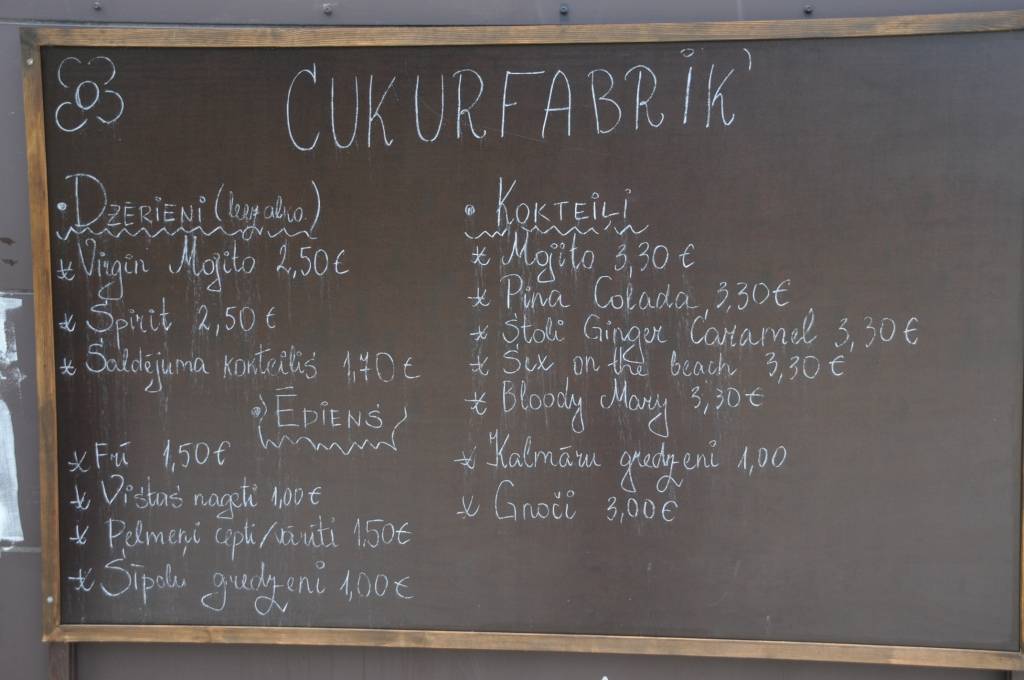 CUKURFABRIK'
• DZĒRIENI (bezalko)
* Virgin Mojito 2,50€
* Spirit 2,50€
* Saldējuma kokteilis 1,70€
• KOKTEIĻI
* Mojito 3,30€
* Pina Colada 3,30€
* Stoli Ginger Caramel 3,30€
* Sex on the beach 3,30€
* Bloody Mary 3,30€
• ĒDIENS
* Frī 1,50€
* Vistas nageti 1,00€
* Pelmeņi cepti/vārīti 1,50€
* Sīpolu gredzeni 1,00€
* Kalmāru gredzeni 1,00
* Gnoči 3,00€